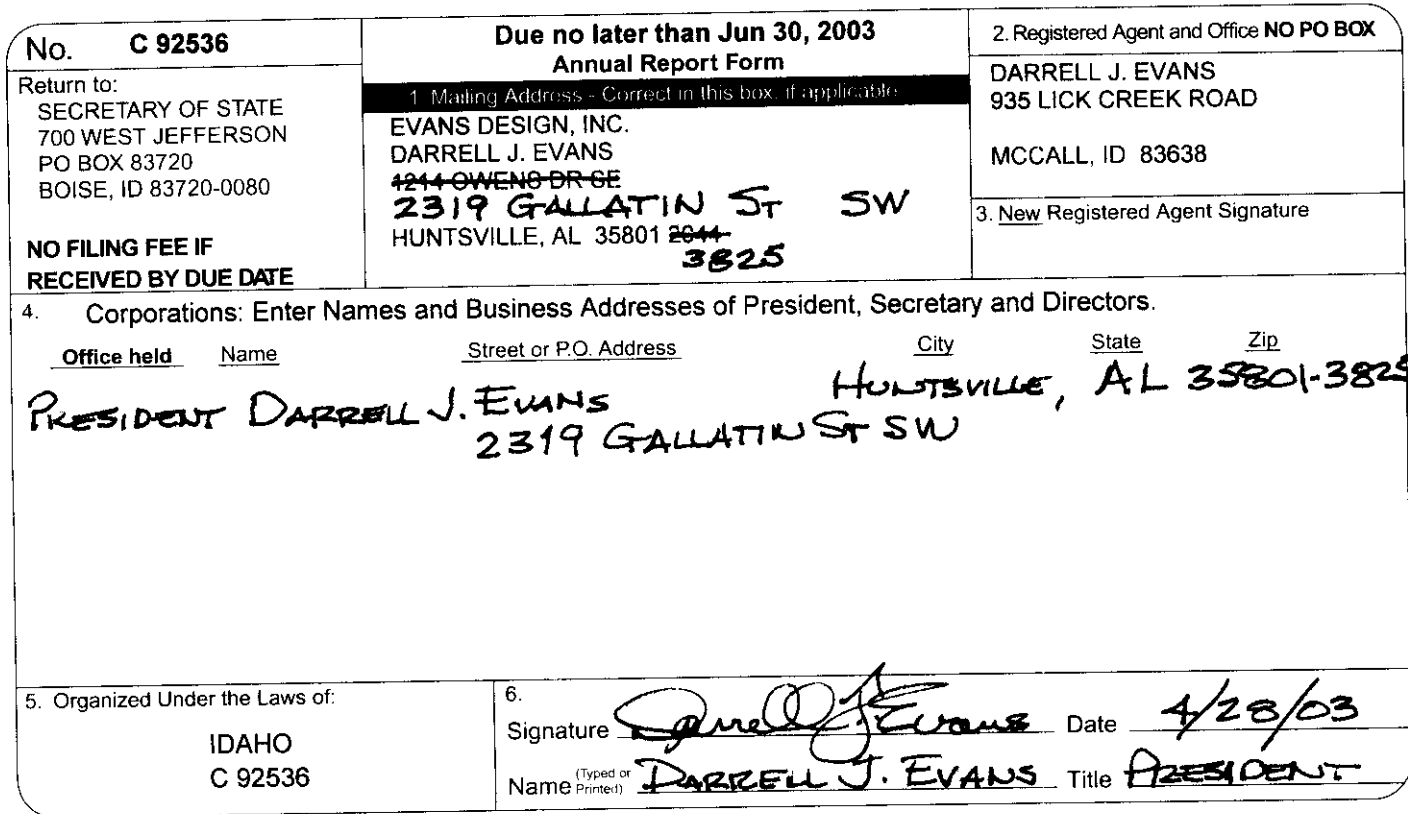 No. C 92536
Return to:
SECRETARY OF STATE
700 WEST JEFFERSON
PO BOX 83720
BOISE, ID 83720-0080
NO FILING FEE IF
RECEIVED BY DUE DATE
Due no later than Jun 30, 2003
Annual Report Form
1. Mailing Address - Correct in this box, if applicable
EVANS DESIGN, INC.
DARRELL J. EVANS
1214 OWENS DR SE
2319 GALLATIN ST SW
HUNTSVILLE, AL 35801 2044
3825
2. Registered Agent and Office NO PO BOX
DARRELL J. EVANS
935 LICK CREEK ROAD
MCCALL, ID 83638
3. New Registered Agent Signature
4. Corporations: Enter Names and Business Addresses of President, Secretary and Directors.
Office held Name Street or P.O. Address City State Zip
PRESIDENT DARRELL J. EVANS HUNTSVILLE, AL 35801-3825
2319 GALLATIN ST SW
5. Organized Under the Laws of:
IDAHO
C 92536
6.
Signature Darrell J Evans Date 4/28/03
Name (Typed or Printed) DARRELL J. EVANS Title PRESIDENT